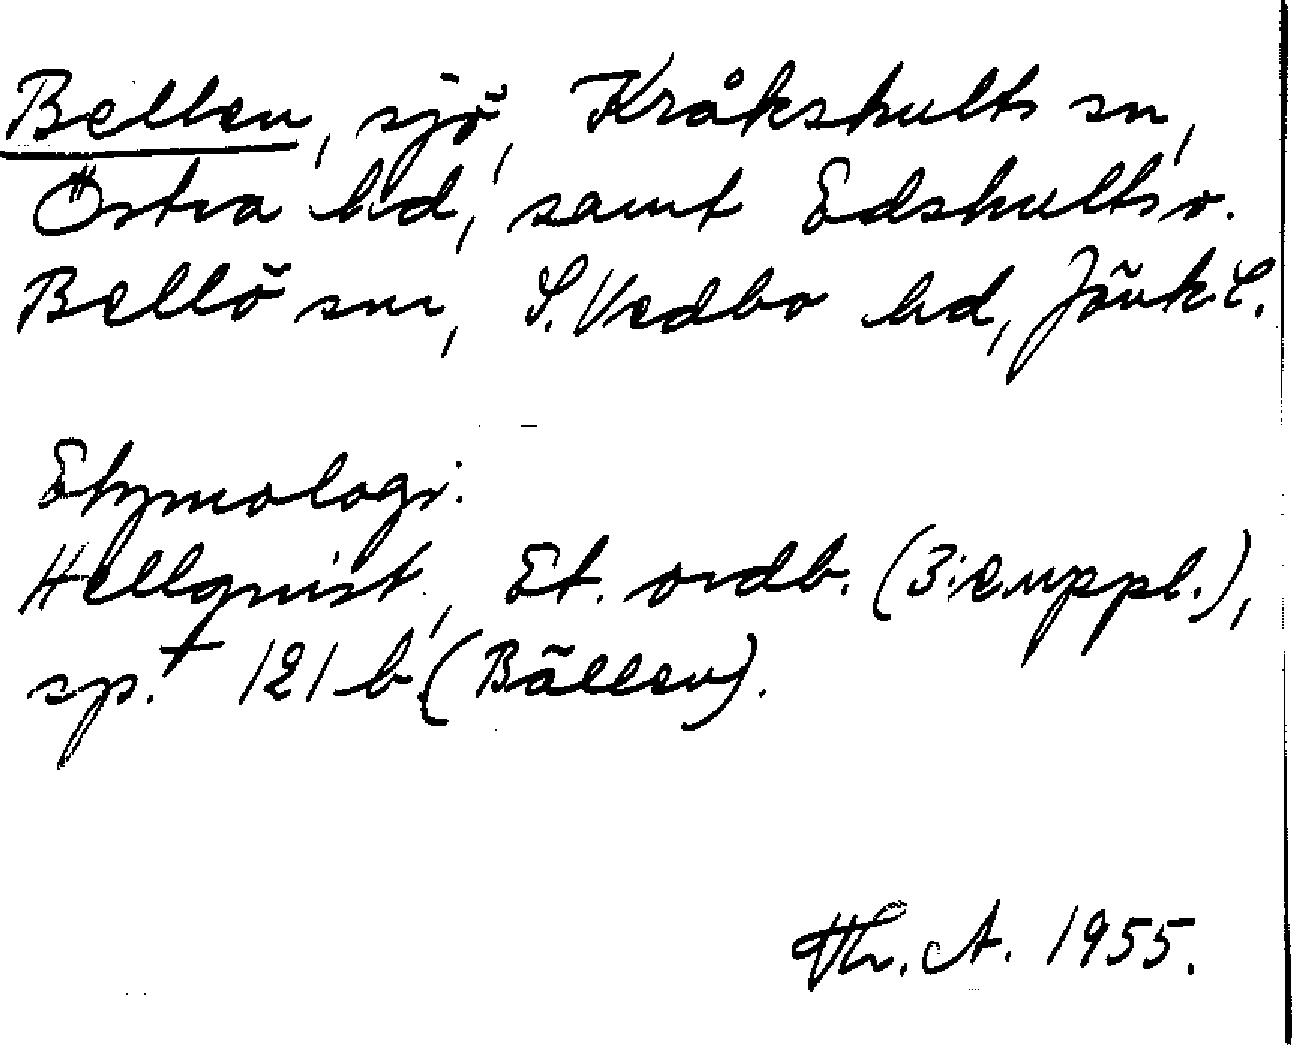 Bellen, sjö, Kråkshults sn,
Östra hd, samt Edshults o.
Bellö snr, S. Vedbo hd, Jönk. L.
Etymologi:
Hellquist, Et. ordb. (3:e uppl.),
sp. 121 b (Bällen).
Th. A. 1955.